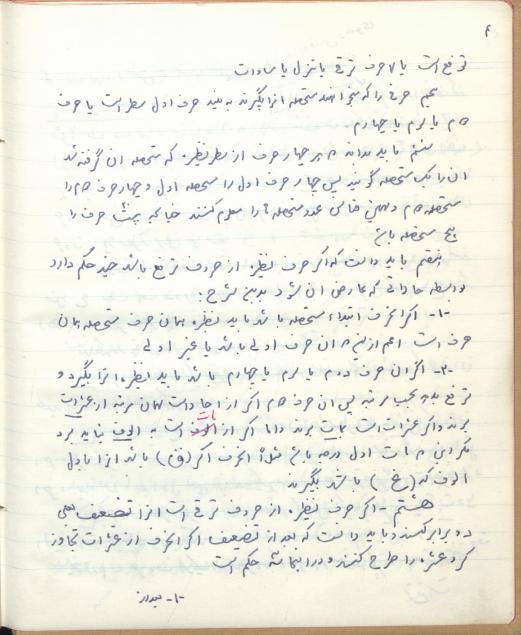 ۶
ترفع است یا حرف ترقی یا تنزل یا مساوات
پنجم حرفی را که میخواهند مستحصله آنرا بگیرند به بینند حرف اول سطر است یا حرف
دوم یا سوم یا چهارم
ششم باید بدانند هر چهار حرف از سطر نظیره که مستحصله آن گرفته شد
آن را یک مستحصله گویند پس چهار حرف اول را مستحصله اول و چهار حرف دوم را
مستحصله دوم و بهمین قیاس عدد مستحصله را معلوم کنند چنانچه بیست حرف را
پنج مستحصله باشد
هفتم باید دانست که اگر حرف نظیره از حروف ترفع باشد چند حکم دارد
بواسطه حالاتی که عارض آن شود بدین شرح :
-۱- اگر آنحرف ابتداء مستحصله باشد باید نظیره همان حرف مستحصله همان
حرف است اعم از اینکه آن حرف اولی باشد یا غیر اولی
-۲- اگر آن حرف دوم یا سوم یا چهارم باشد باید نظیره آنرا بگیرد و
ترفع بحسب مرتبه پس آن حرف اگر از آحاد است همان مرتبه از عشرات
برند و اگر عشرات است بمآت برند و اما اگر از مآت است به الوف نباید برد
مگر این اول مرتبه باشد مثلاً آنحرف اگر (ق) باشد آنرا باول
الوف که (غ) باشد بگیرند
هشتم - اگر حرف نظیره از حروف ترقی است آنرا تضعیف یعنی
دو برابر کنند و باید دانست که بعد از تضعیف اگر آنحرف از عشرات تجاوز
کرد عشره را طرح کنند و در اینجا سه حکم است
-۱-